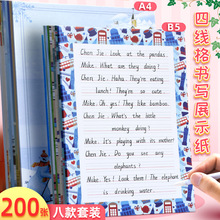 A4
B5
四线格书写展示纸
Chen Jie. Look at the pandas.
Mike. What are they doing?
Chen Jie. Haha. They're eating
lunch! They're so cute.
Mike. Oh, yes! They like bamboo.
Chen Jie. What's the little
monkey doing?
Mike. It's playing with its mother!
Chen Jie. Do you see any
elephants?
Mike. Yes! Look there! The elephant
is drinking water.
200张
八款套装